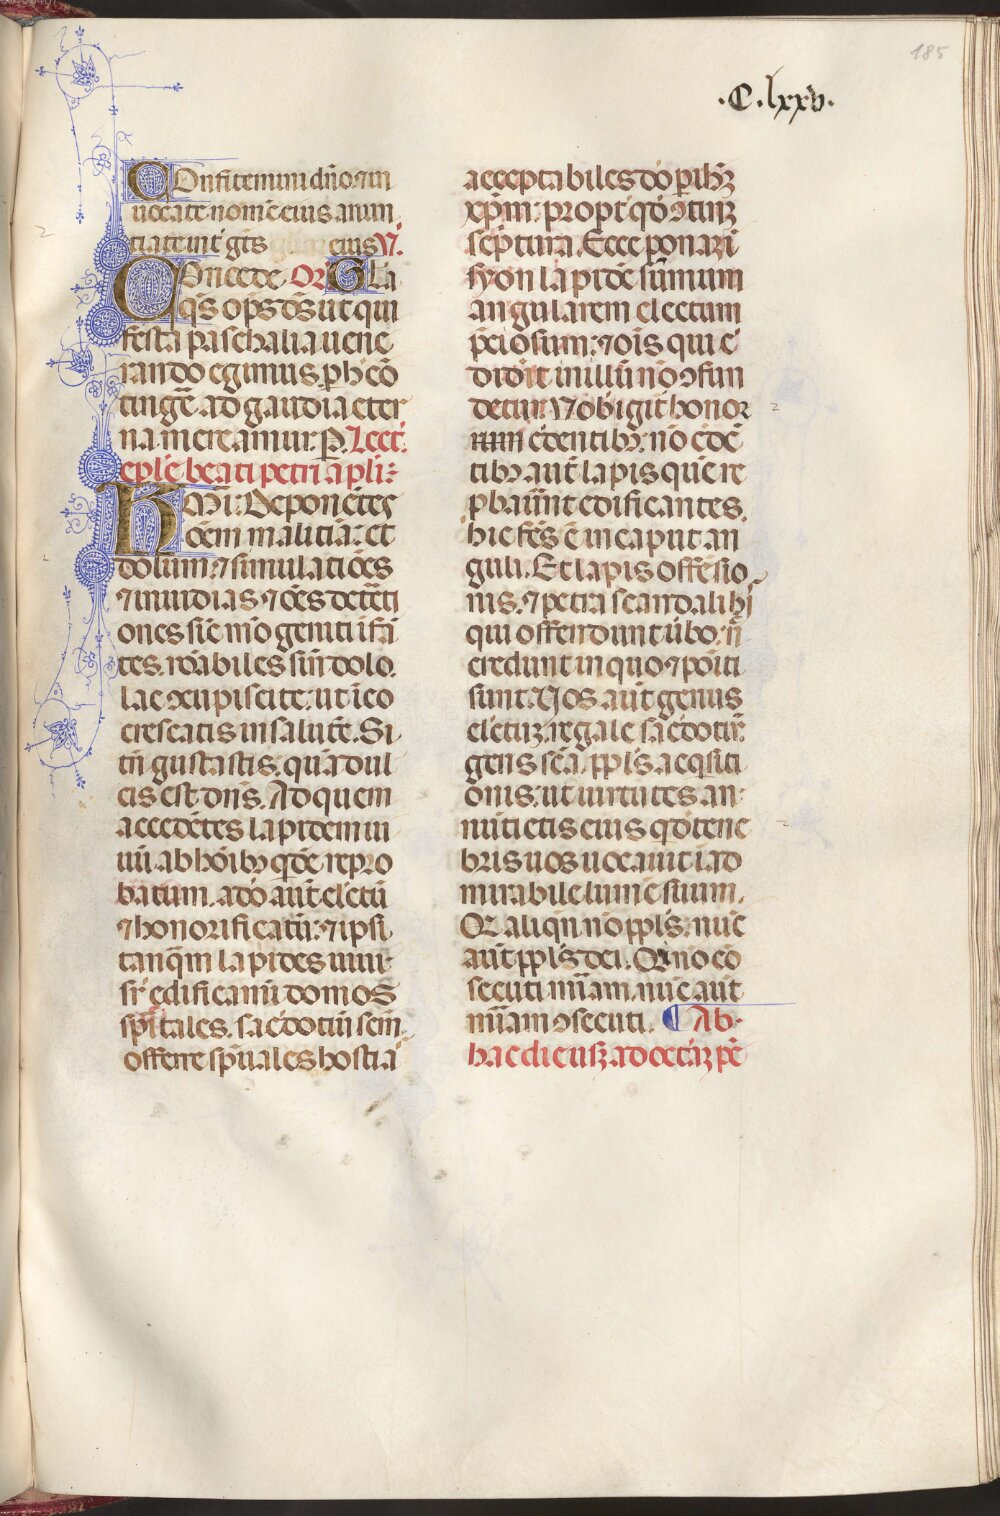 185
.C.lxxv.
COnfitemini dño ⁊ in
uocate nomē eius anun
tiate int̄ gtēs eius. V̄.
COncede OR̄ Gła
q̄s op̄s ds̄ ut qui
festa paschalia uene
rando egimus. p̄ h̄ cō
tingē̄ ad gaudia eter
na mereamur. P̄. Lect̄.
ep̄lē beati petri apłi:
KMi: Deponētes
oēm malitiā: et
dolum: ⁊ simulatiōes
⁊ inuidias ⁊ oēs detēti
ones sic̄ mō geniti īfā
tes. rōabiles sin̄ dolo
lac ɔcupiscite: ut ī eo
crescatis in salutē. Si
tn̄ gustastis. qm̄ dul
cis est dn̄s. Ad quem
accedētes lapidem ui
uū. ab hōibꝫ qdē repro
batum. a dō aut̄ electū
⁊ honorificatū: ⁊ ipsi
tanq̄m lapides uiui
sr̄ edificamī domos
sp̄itales. sac̄dotiū sc̄m
offerre sp̄uales hostia
acceptabiles dō p̄ ihꝫ
xp̄m: propt̄ qd̄ ɔtinꝫ
sc̄ptura. Ecce ponā ī
syon lapidē sūmum
angularem electum
p̄ciosum: ⁊ oīs qui c̄
didit̄ in illū nō ɔfun
detur. Vobis igit̄ honor
c̄dentibꝫ. nō c̄dē
tibꝫ aut̄ lapis quē re
p̄bauer̄nt edificantes.
hic fc̄s ē in caput an
guli. Et lapis offēsio
nis. ⁊ petra scandali hı̄
qui offendunt ūbo. n̄
credunt in quo ⁊ pōiti
sunt. Vos aut̄ genus
electū. regale sac̄dotiū.
gens sc̄ā. pp̄ls acqsiti
onis: ut uirtutes an:
nūtietis eius qd̄ tene
bris uos uocauit ī ad
mirabile lumē suum.
Q̄ aliqn̄ nō pp̄ls. nūc
aut̄ pp̄ls dei. Q̄ nō cō
secuti mīam. nūc aut̄
mīam ɔsecuti. ¶ Ab
hac die usꝫ ad octāꝫ pē